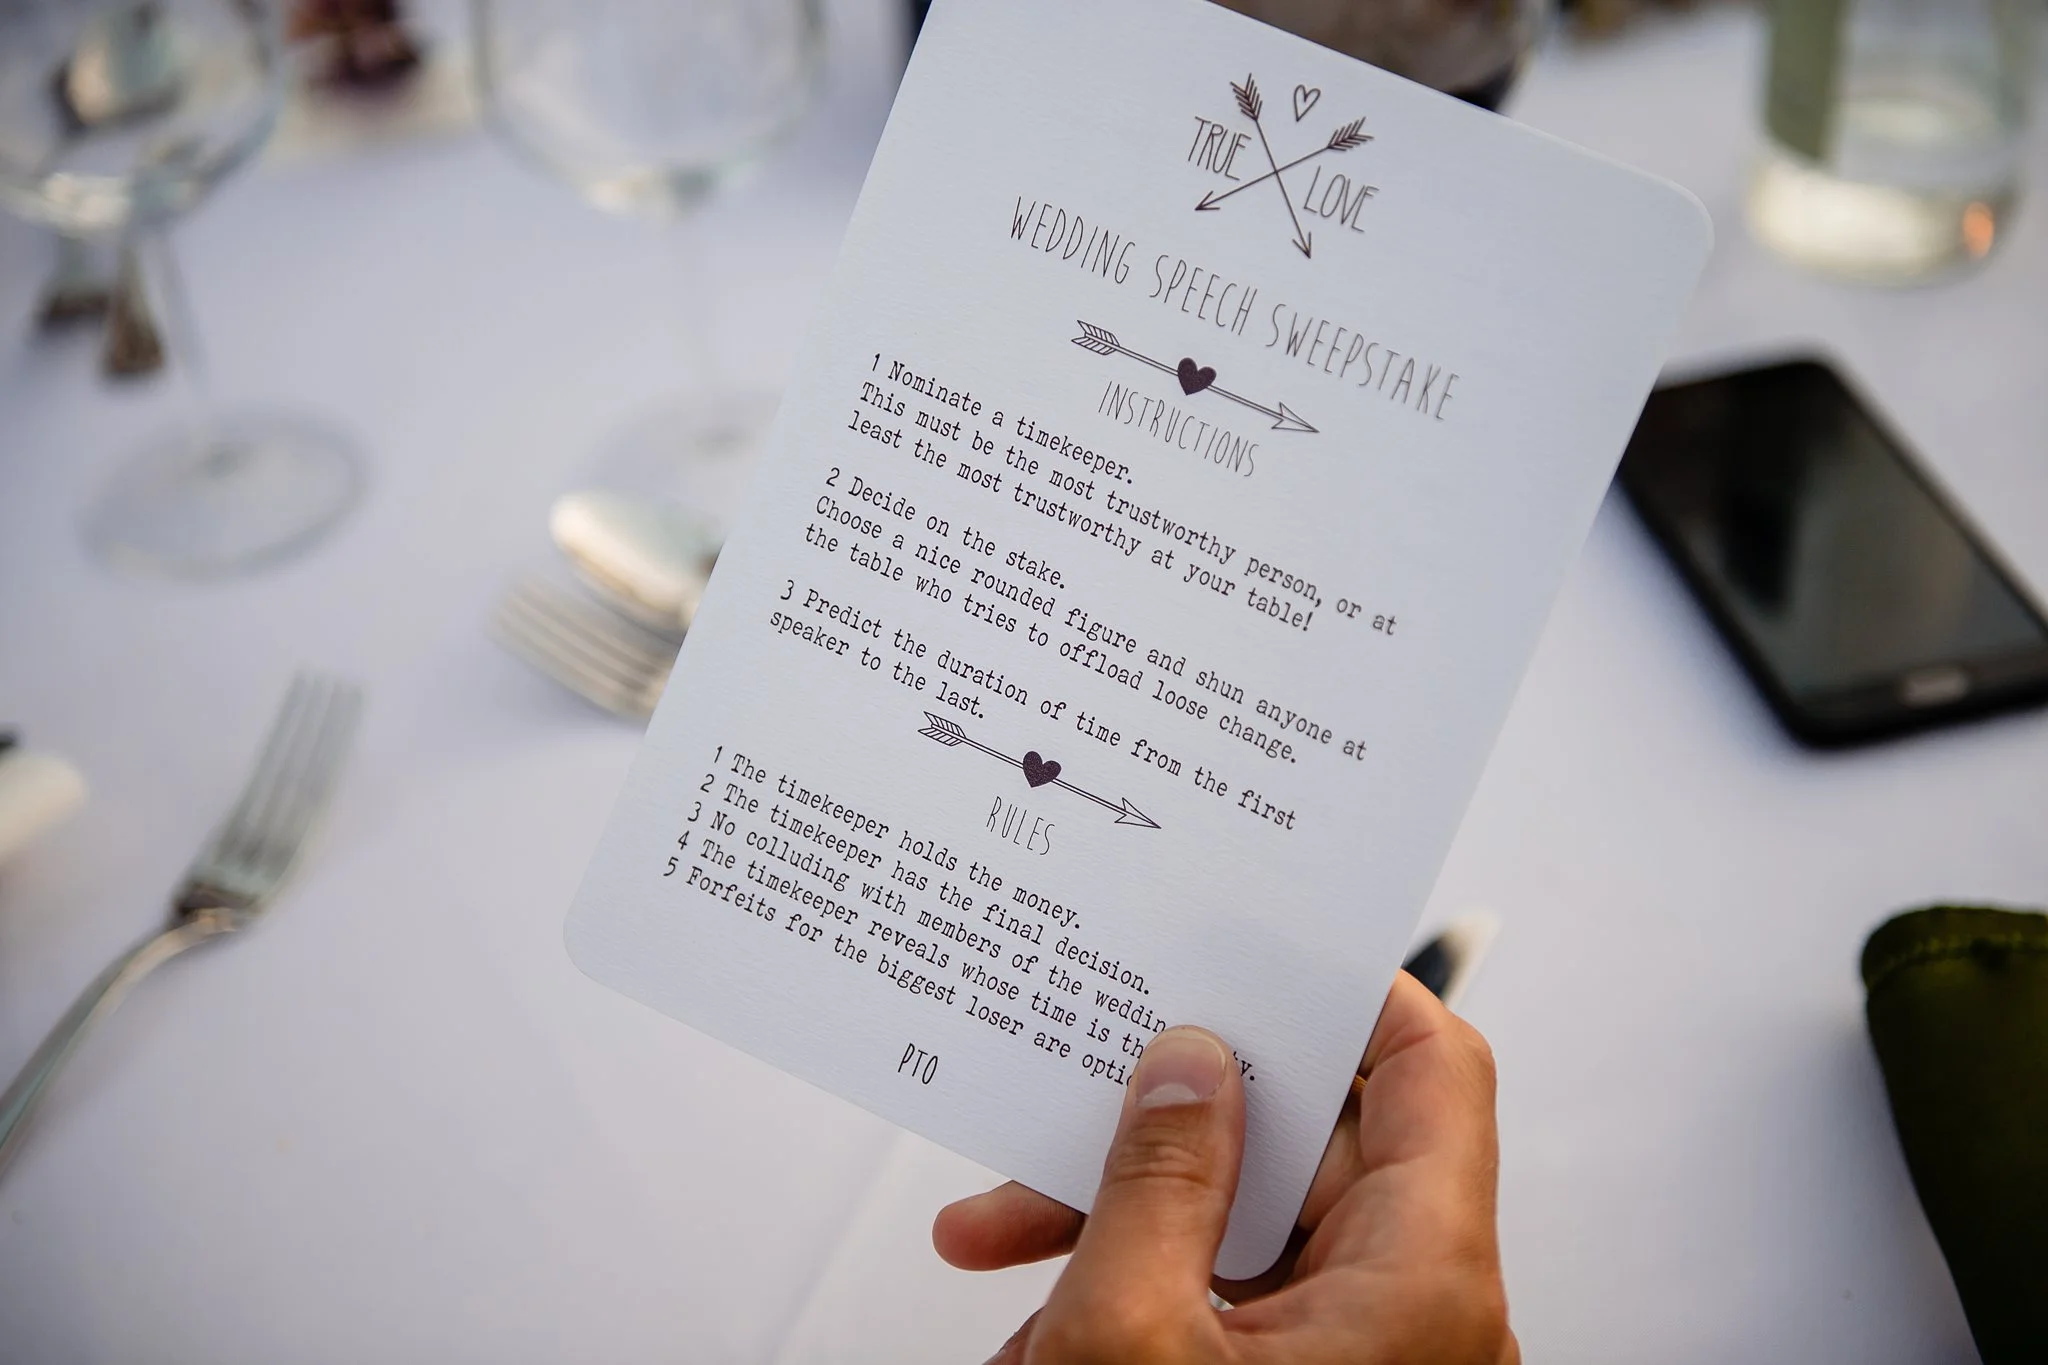 TRUE LOVE
WEDDING SPEECH SWEEPSTAKE
INSTRUCTIONS
1 Nominate a timekeeper.
This must be the most trustworthy person, or at
least the most trustworthy at your table!
2 Decide on the stake.
Choose a nice rounded figure and shun anyone at
the table who tries to offload loose change.
3 Predict the duration of time from the first
speaker to the last.
RULES
1 The timekeeper holds the money.
2 The timekeeper has the final decision.
3 No colluding with members of the
4 The timekeeper reveals whose time is
5 Forfeits for the biggest loser are
PTO